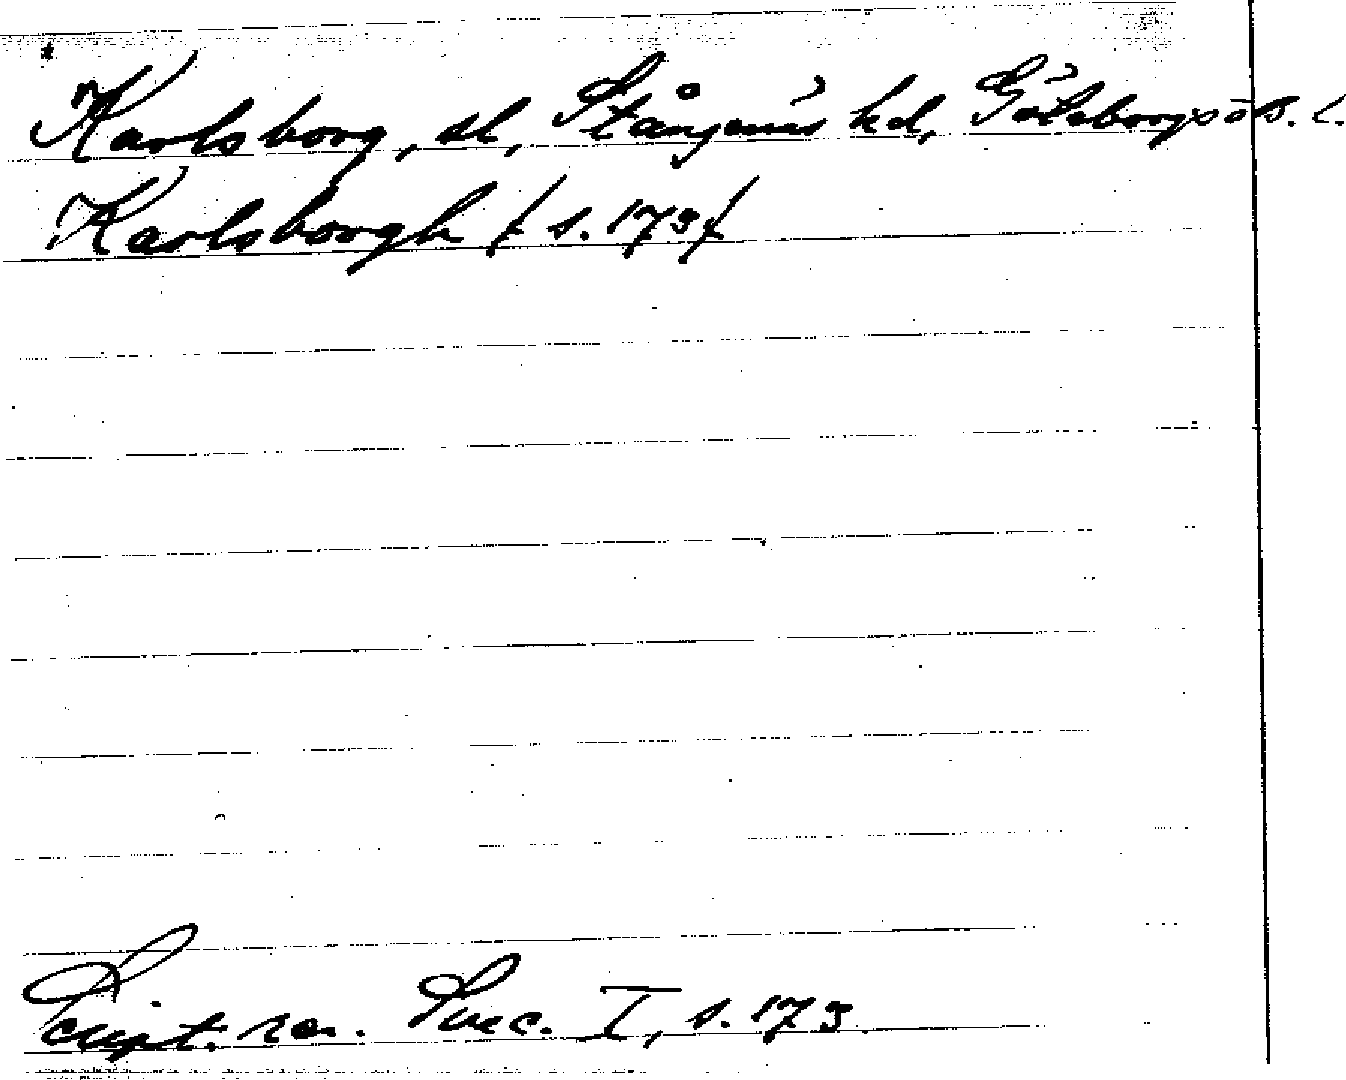 Karlsborg, sl, Stångenäs hd, Göteborgs o B. l.
Karlsborgh / s. 173 /
Script. rer. Suec. I, s. 173